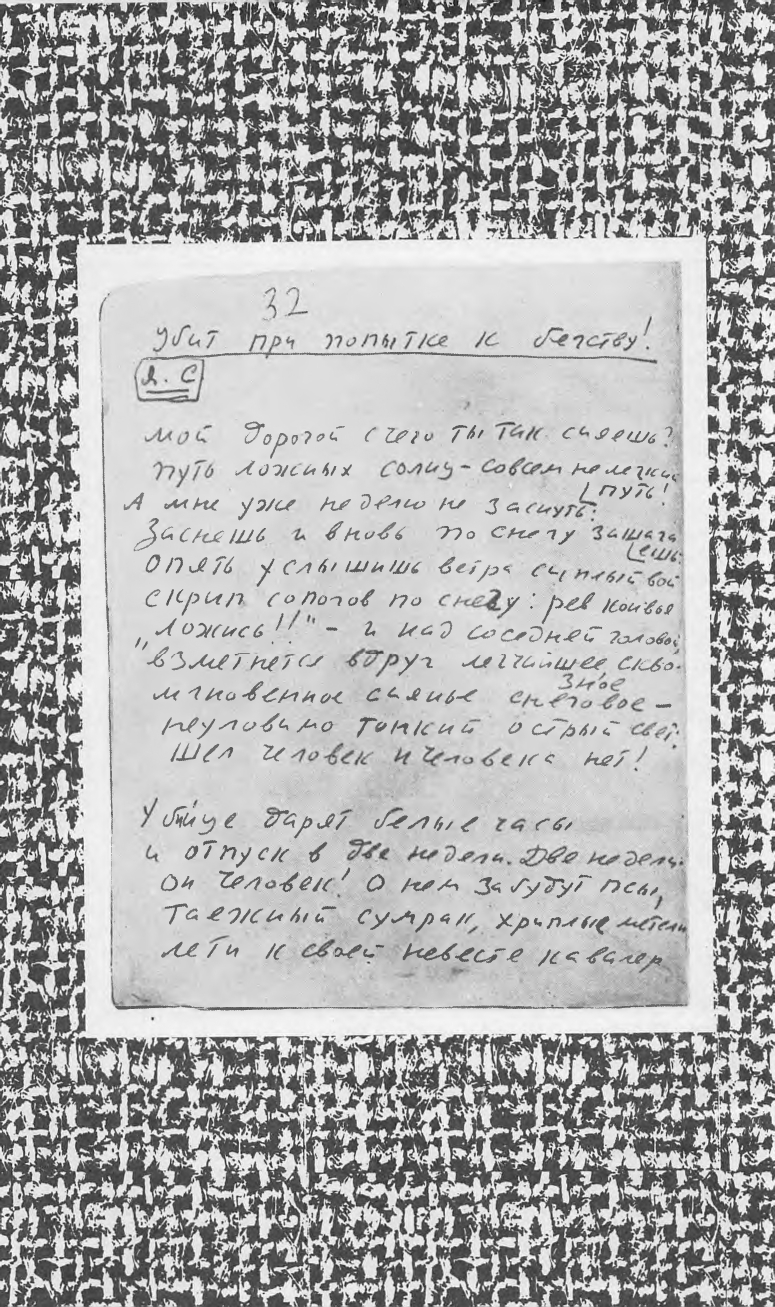 32
Убит при попытке к бегству!
Я. С
Мой дорогой с чего ты так сияешь?
Путь ложных солнц - совсем не легкий
путь!
А мне уже неделю не заснуть.
Заснешь и вновь по снегу зашага
ешь
Опять услышишь ветра сиплый вой
скрип сопогов по снегу: рев конвоя
"Ложись!!" - и над соседней головой
взметнется вдруг легчайшее скво-
зное
мгновенное сиянье снеговое -
неуловимо тонкий острый свет.
Шел человек и человека нет!
Убийце дарят белые часы
и отпуск в две недели. Две недели.
Он человек! О нем забудут псы,
таежный сумрак, хриплые метели
лети к своей невесте кавалер